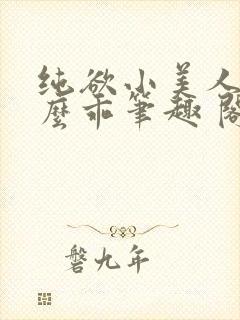 纯欲小美人
麽乖筆趣阁
磐九年